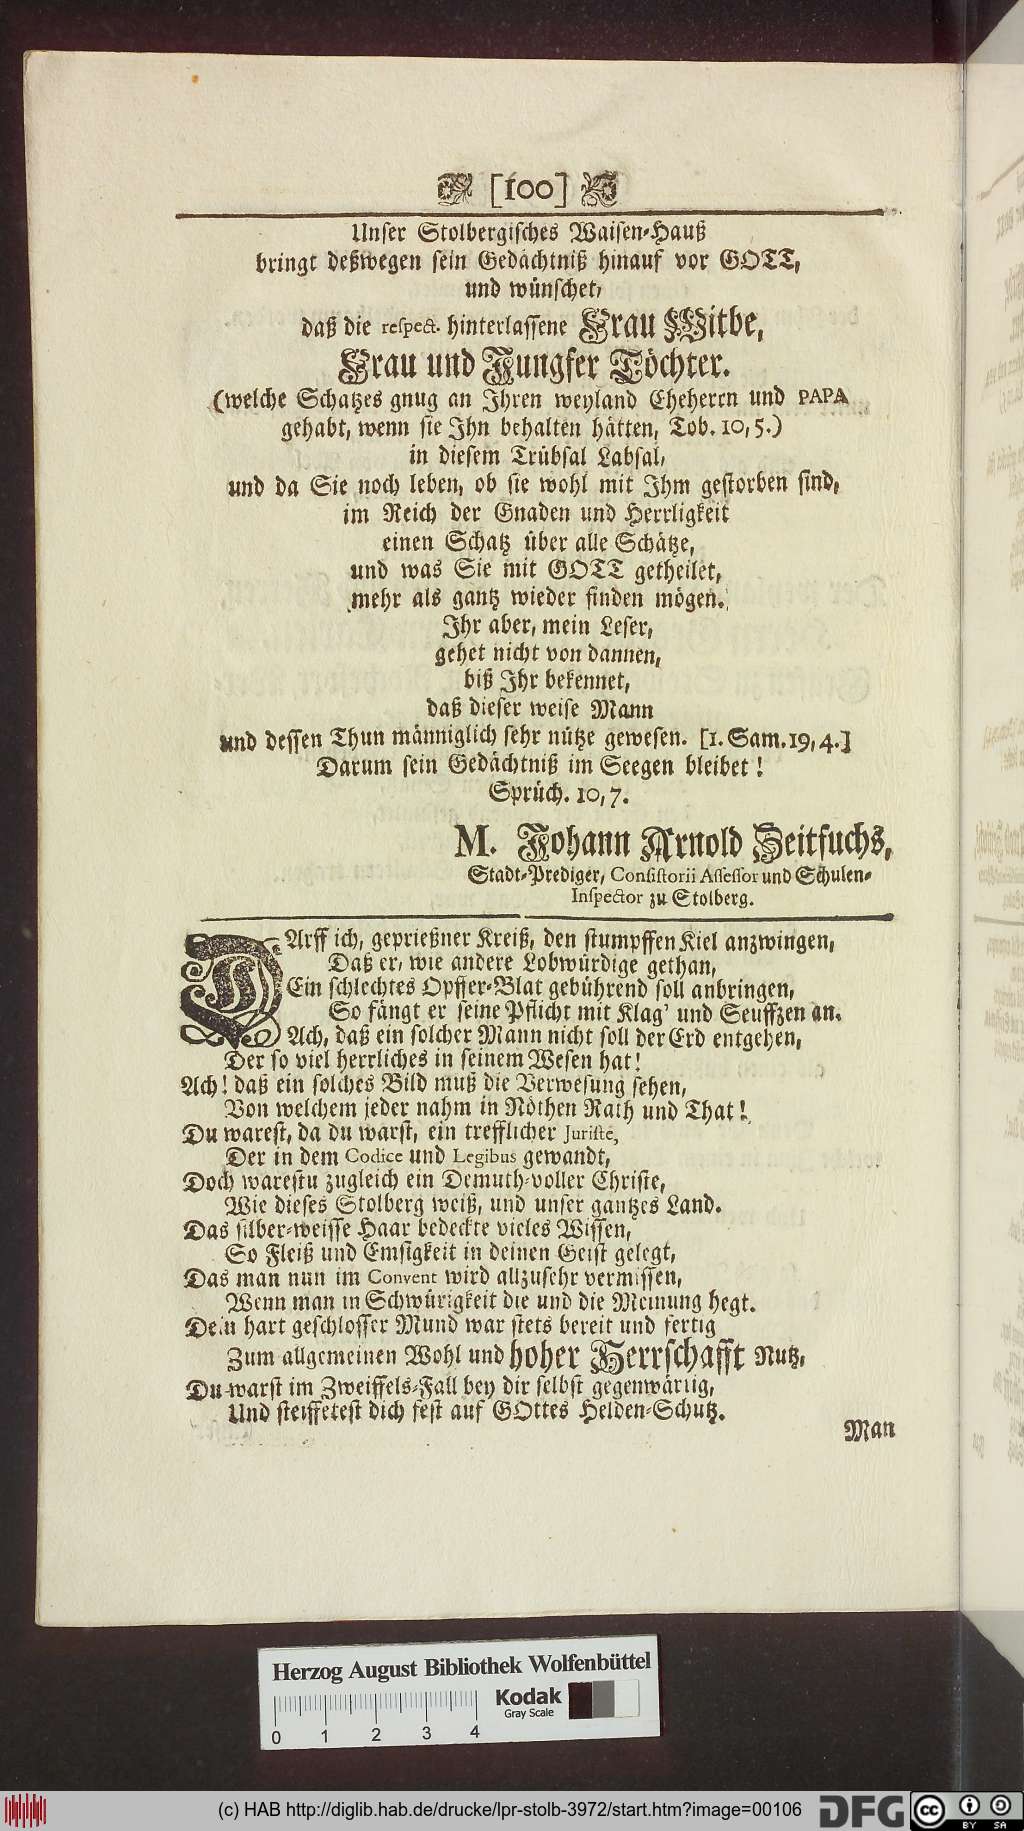 [100]
Unser Stolbergisches Waisen-Hauß
bringt deßwegen sein Gedächtniß hinauf vor GOTT,
und wünschet,
daß die respect. hinterlassene Frau Witbe,
Frau und Jungfer Töchter.
(welche Schatzes gnug an Ihren weyland Eheherrn und PAPA
gehabt, wenn sie Ihn behalten hätten, Tob. 10, 5.)
in diesem Trübsal Labsal,
und da Sie noch leben, ob sie wohl mit Ihm gestorben sind,
im Reich der Gnaden und Herrligkeit
einen Schatz über alle Schätze,
und was Sie mit GOTT getheilet,
mehr als gantz wieder finden mögen.
Ihr aber, mein Leser,
gehet nicht von dannen,
biß Ihr bekennet,
daß dieser weise Mann
und dessen Thun männiglich sehr nütze gewesen. [1. Sam. 19, 4.]
Darum sein Gedächtniß im Seegen bleibet!
Sprüch. 10, 7.
M. Johann Arnold Zeitfuchs,
Stadt-Prediger, Consistorii Assessor und Schulen-
Inspector zu Stolberg.
DArff ich, geprießner Kreiß, den stumpffen Kiel anzwingen,
Daß er, wie andere Lobwürdige gethan,
Ein schlechtes Opffer-Blat gebührend soll anbringen,
So fängt er seine Pflicht mit Klag' und Seuffzen an.
Ach, daß ein solcher Mann nicht soll der Erd entgehen,
Der so viel herrliches in seinem Wesen hat!
Ach! daß ein solches Bild muß die Verwesung sehen,
Von welchem jeder nahm in Nöthen Rath und That!
Du warest, da du warst, ein trefflicher Juriste,
Der in dem Codice und Legibus gewandt,
Doch warestu zugleich ein Demuth-voller Christe,
Wie dieses Stolberg weiß, und unser gantzes Land.
Das silber-weisse Haar bedeckte vieles Wissen,
So Fleiß und Emsigkeit in deinen Geist gelegt,
Das man nun im Convent wird allzusehr vermissen,
Wenn man in Schwürigkeit die und die Meinung hegt.
Dein hart geschlosser Mund war stets bereit und fertig
Zum allgemeinen Wohl und hoher Herrschafft Nutz,
Du warst im Zweiffels-Fall bey dir selbst gegenwärtig,
Und steiffetest dich fest auf GOttes Helden-Schutz.
Man
Herzog August Bibliothek Wolfenbüttel
Kodak
Gray Scale
0 1 2 3 4
(c) HAB http://diglib.hab.de/drucke/lpr-stolb-3972/start.htm?image=00106
DFG
cc BY SA